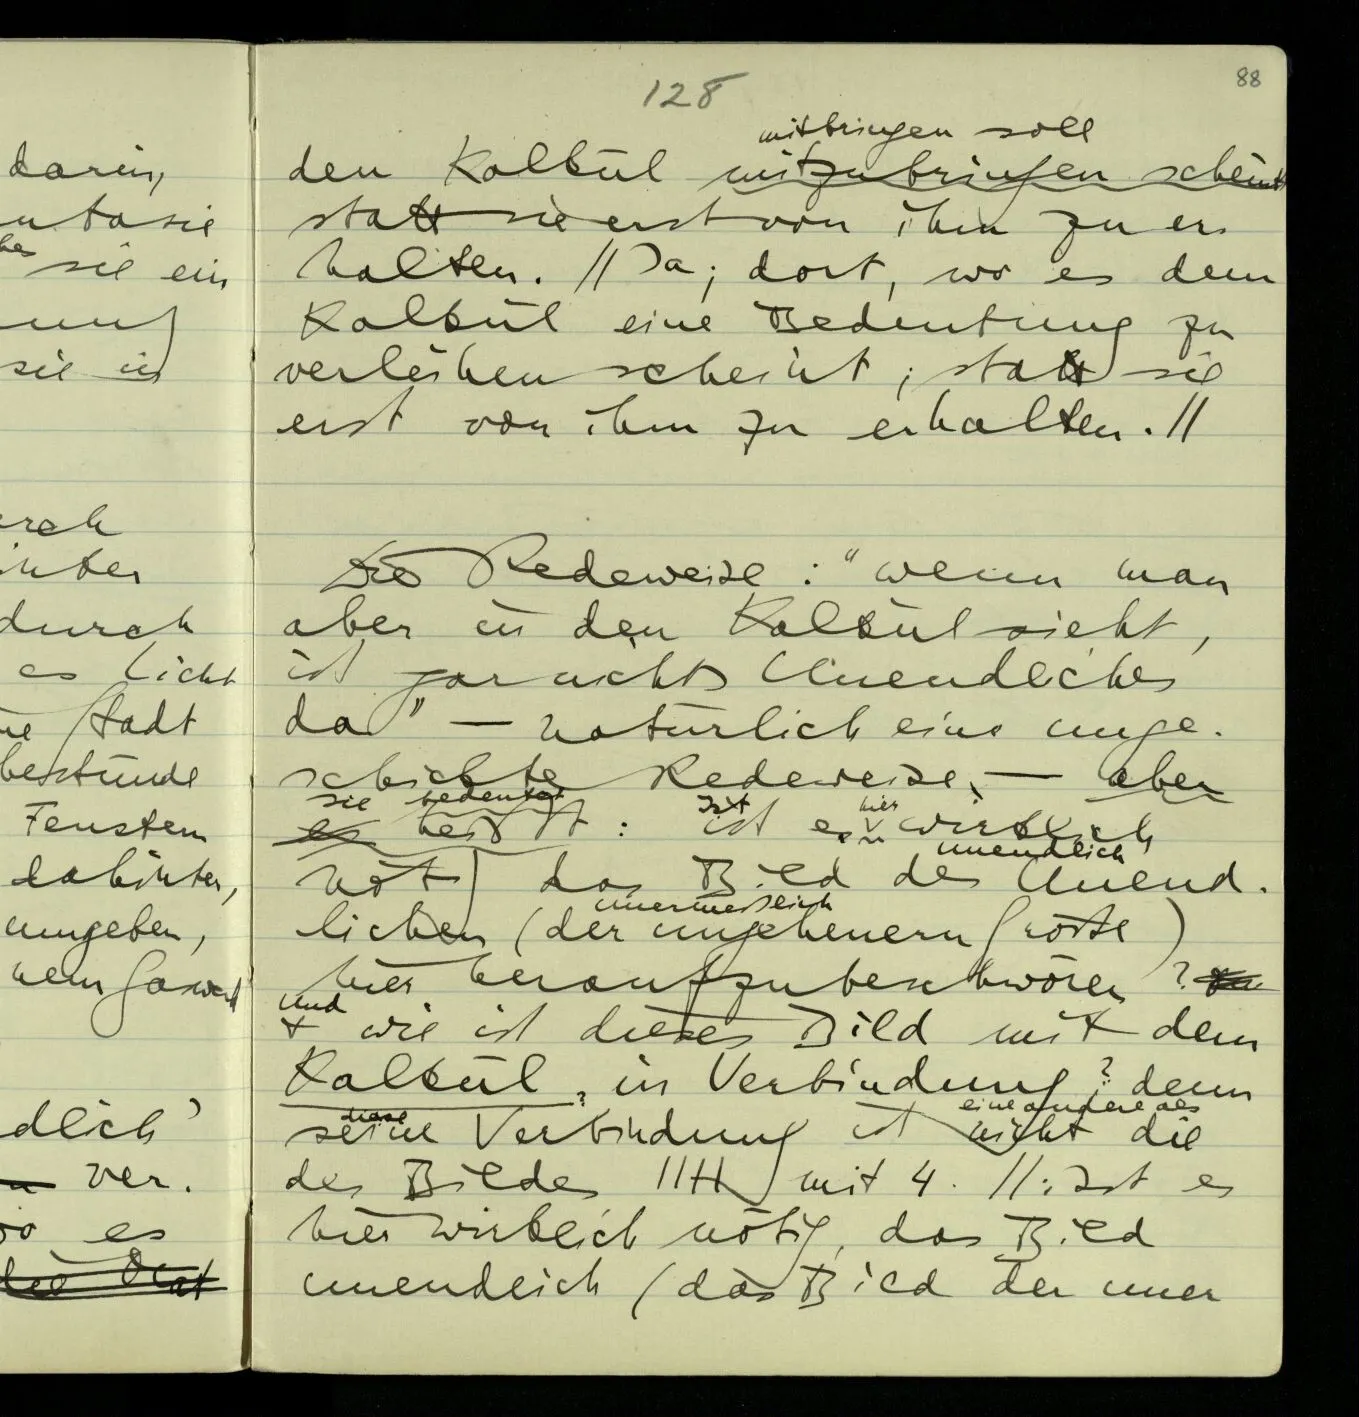 128
88
darin,
sie ein
sie in
durch
es licht
Stadt
bestünde
Fenstern
dahinter,
umgeben,
dlich'
ver.
es
mitbringen soll
den Kalkül mitzubringen scheint
statt sie erst von ihm zu er
halten. // Ja; dort, wo es dem
Kalkül eine Bedeutung zu
verleihen scheint, statt sie
erst von ihm zu erhalten. //
Die Redeweise: "wenn man
aber in den Kalkül sieht,
ist gar nichts Unendliches
da" — natürlich eine unge-
schickte Redeweise, — aber
sie bedeutet
es heißt: ist es hier wirklich
unendlich
nötig das Bild des Unend-
unermesslich
lichen (der ungeheuern Größe)
hier heraufzubeschwören?
und
+ wie ist dieses Bild mit dem
Kalkül in Verbindung? denn
diese eine andere als
seine Verbindung ist nicht die
des Bildes |||| mit 4. //: Ist es
hier wirklich nötig, das Bild
unendlich (das Bild der uner